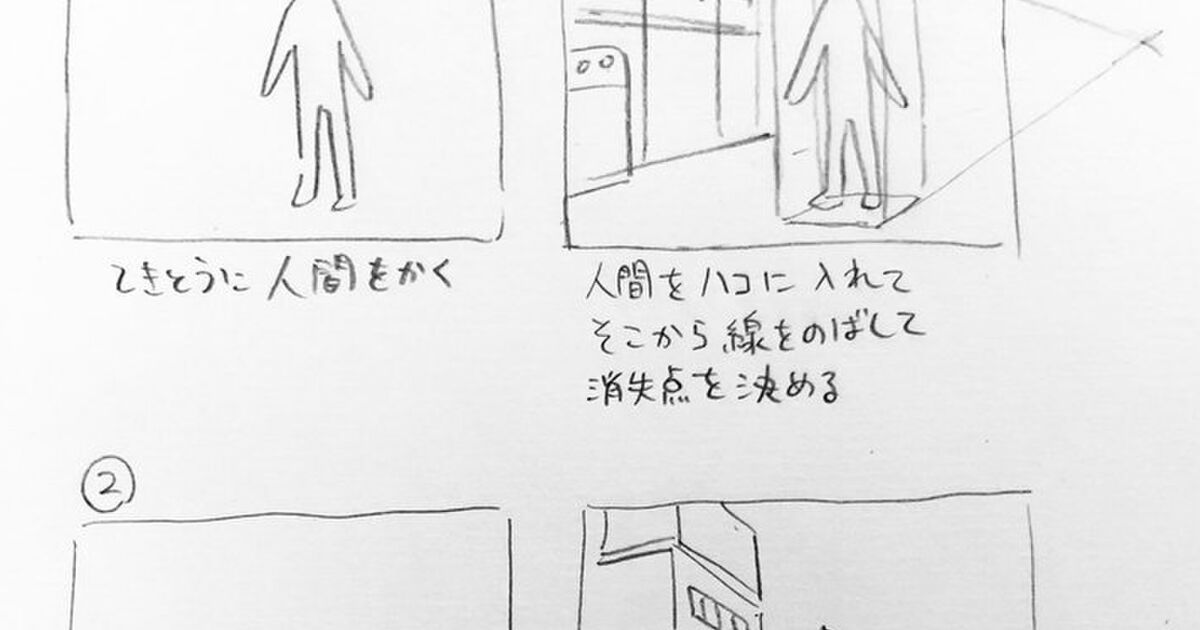 てきとうに人間をかく
人間をハコに入れて
そこから線をのばして
消失点を決める
②